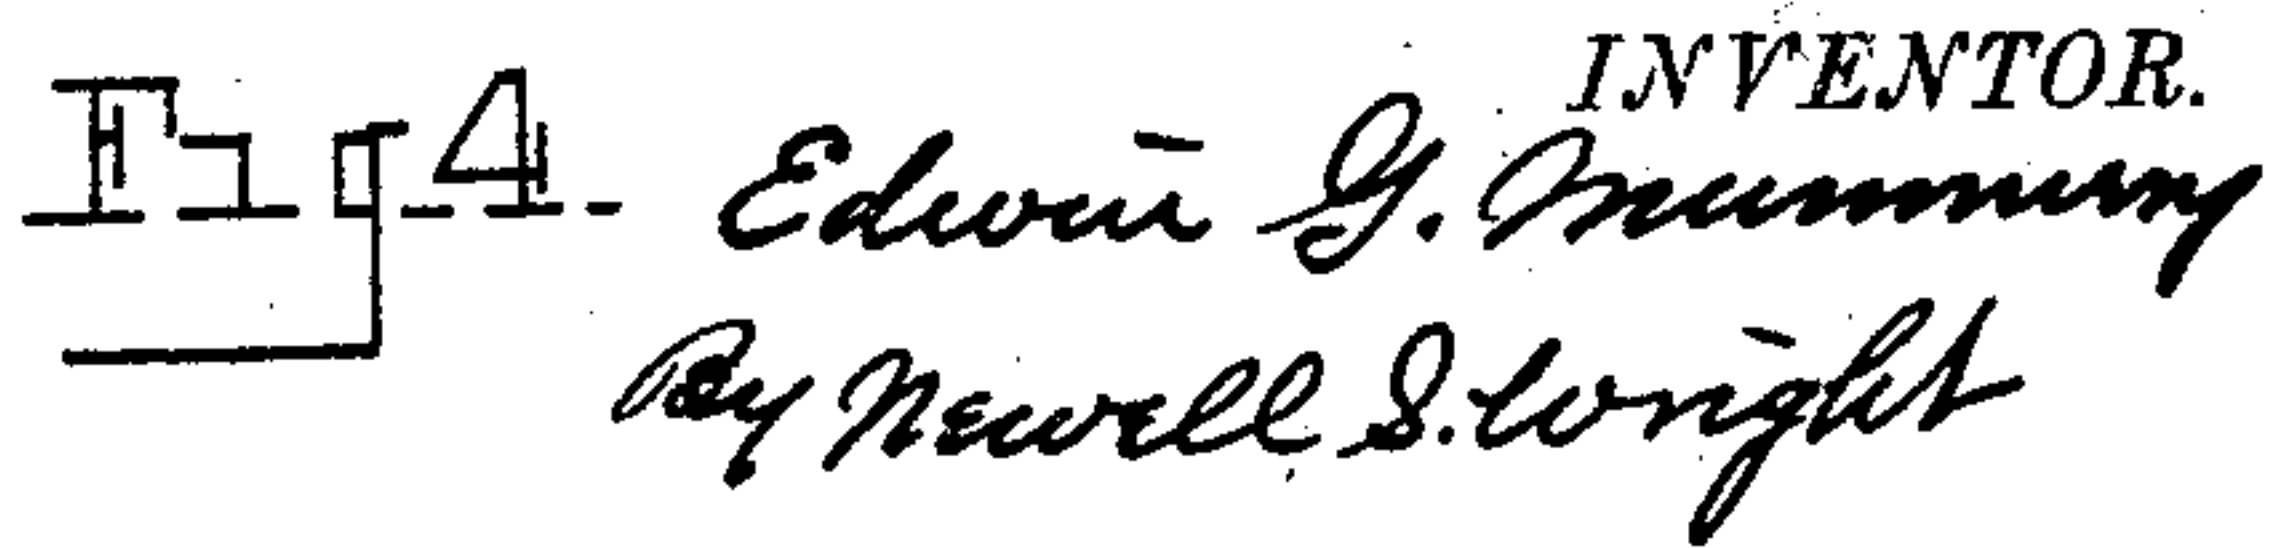 INVENTOR.
Fig_4_ Edwin G. Mummery
By Newell S. Wright